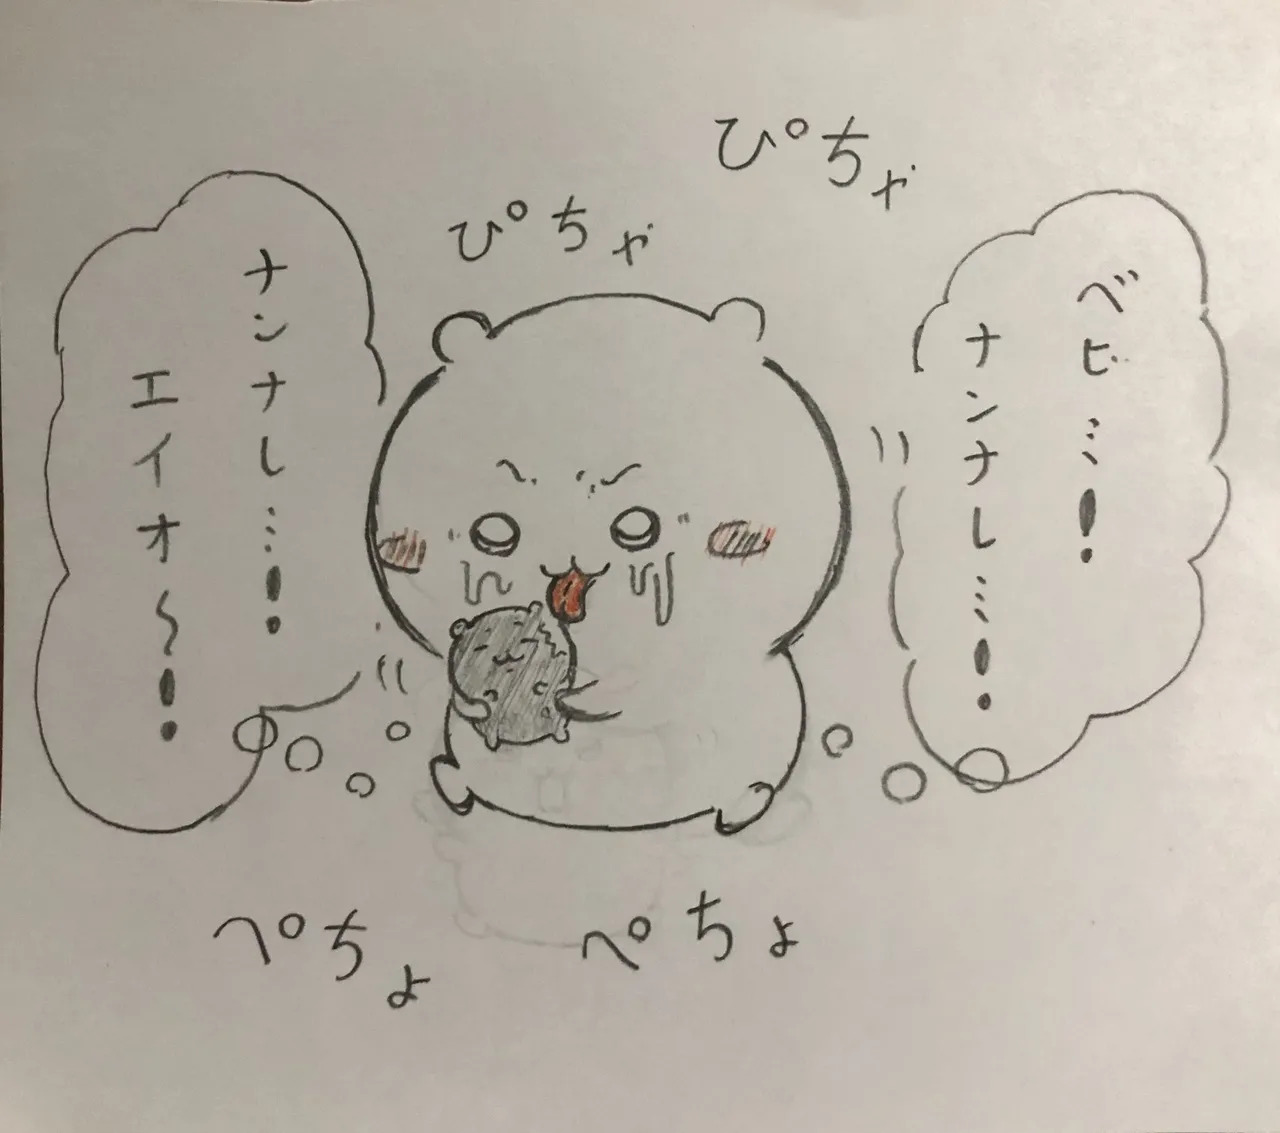 ぴちゃ
ぴちゃ
ベビ…!
ナンナし…!
ナンナし…!
エイオ～!
ぺちょ
ぺちょ